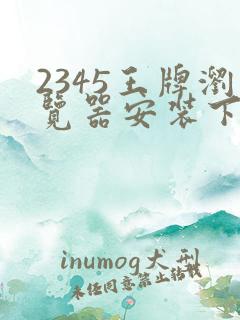 2345王牌瀏
覽器安裝下
inumog犬刑
未经同意禁止转载